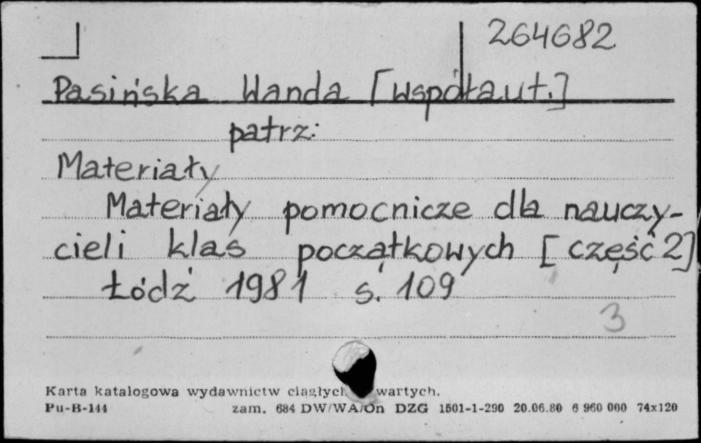 264682
Pasińska Wanda [współaut.]
patrz:
Materiały
Materiały pomocnicze dla nauczy-
cieli klas początkowych [część 2]
Łódź 1981 s. 109
3
Karta katalogowa wydawnictw ciągłych wartych.
Pu-B-144 zam. 684 DW/WA/On DZG 1501-1-290 20.06.80 6 960 000 74x120